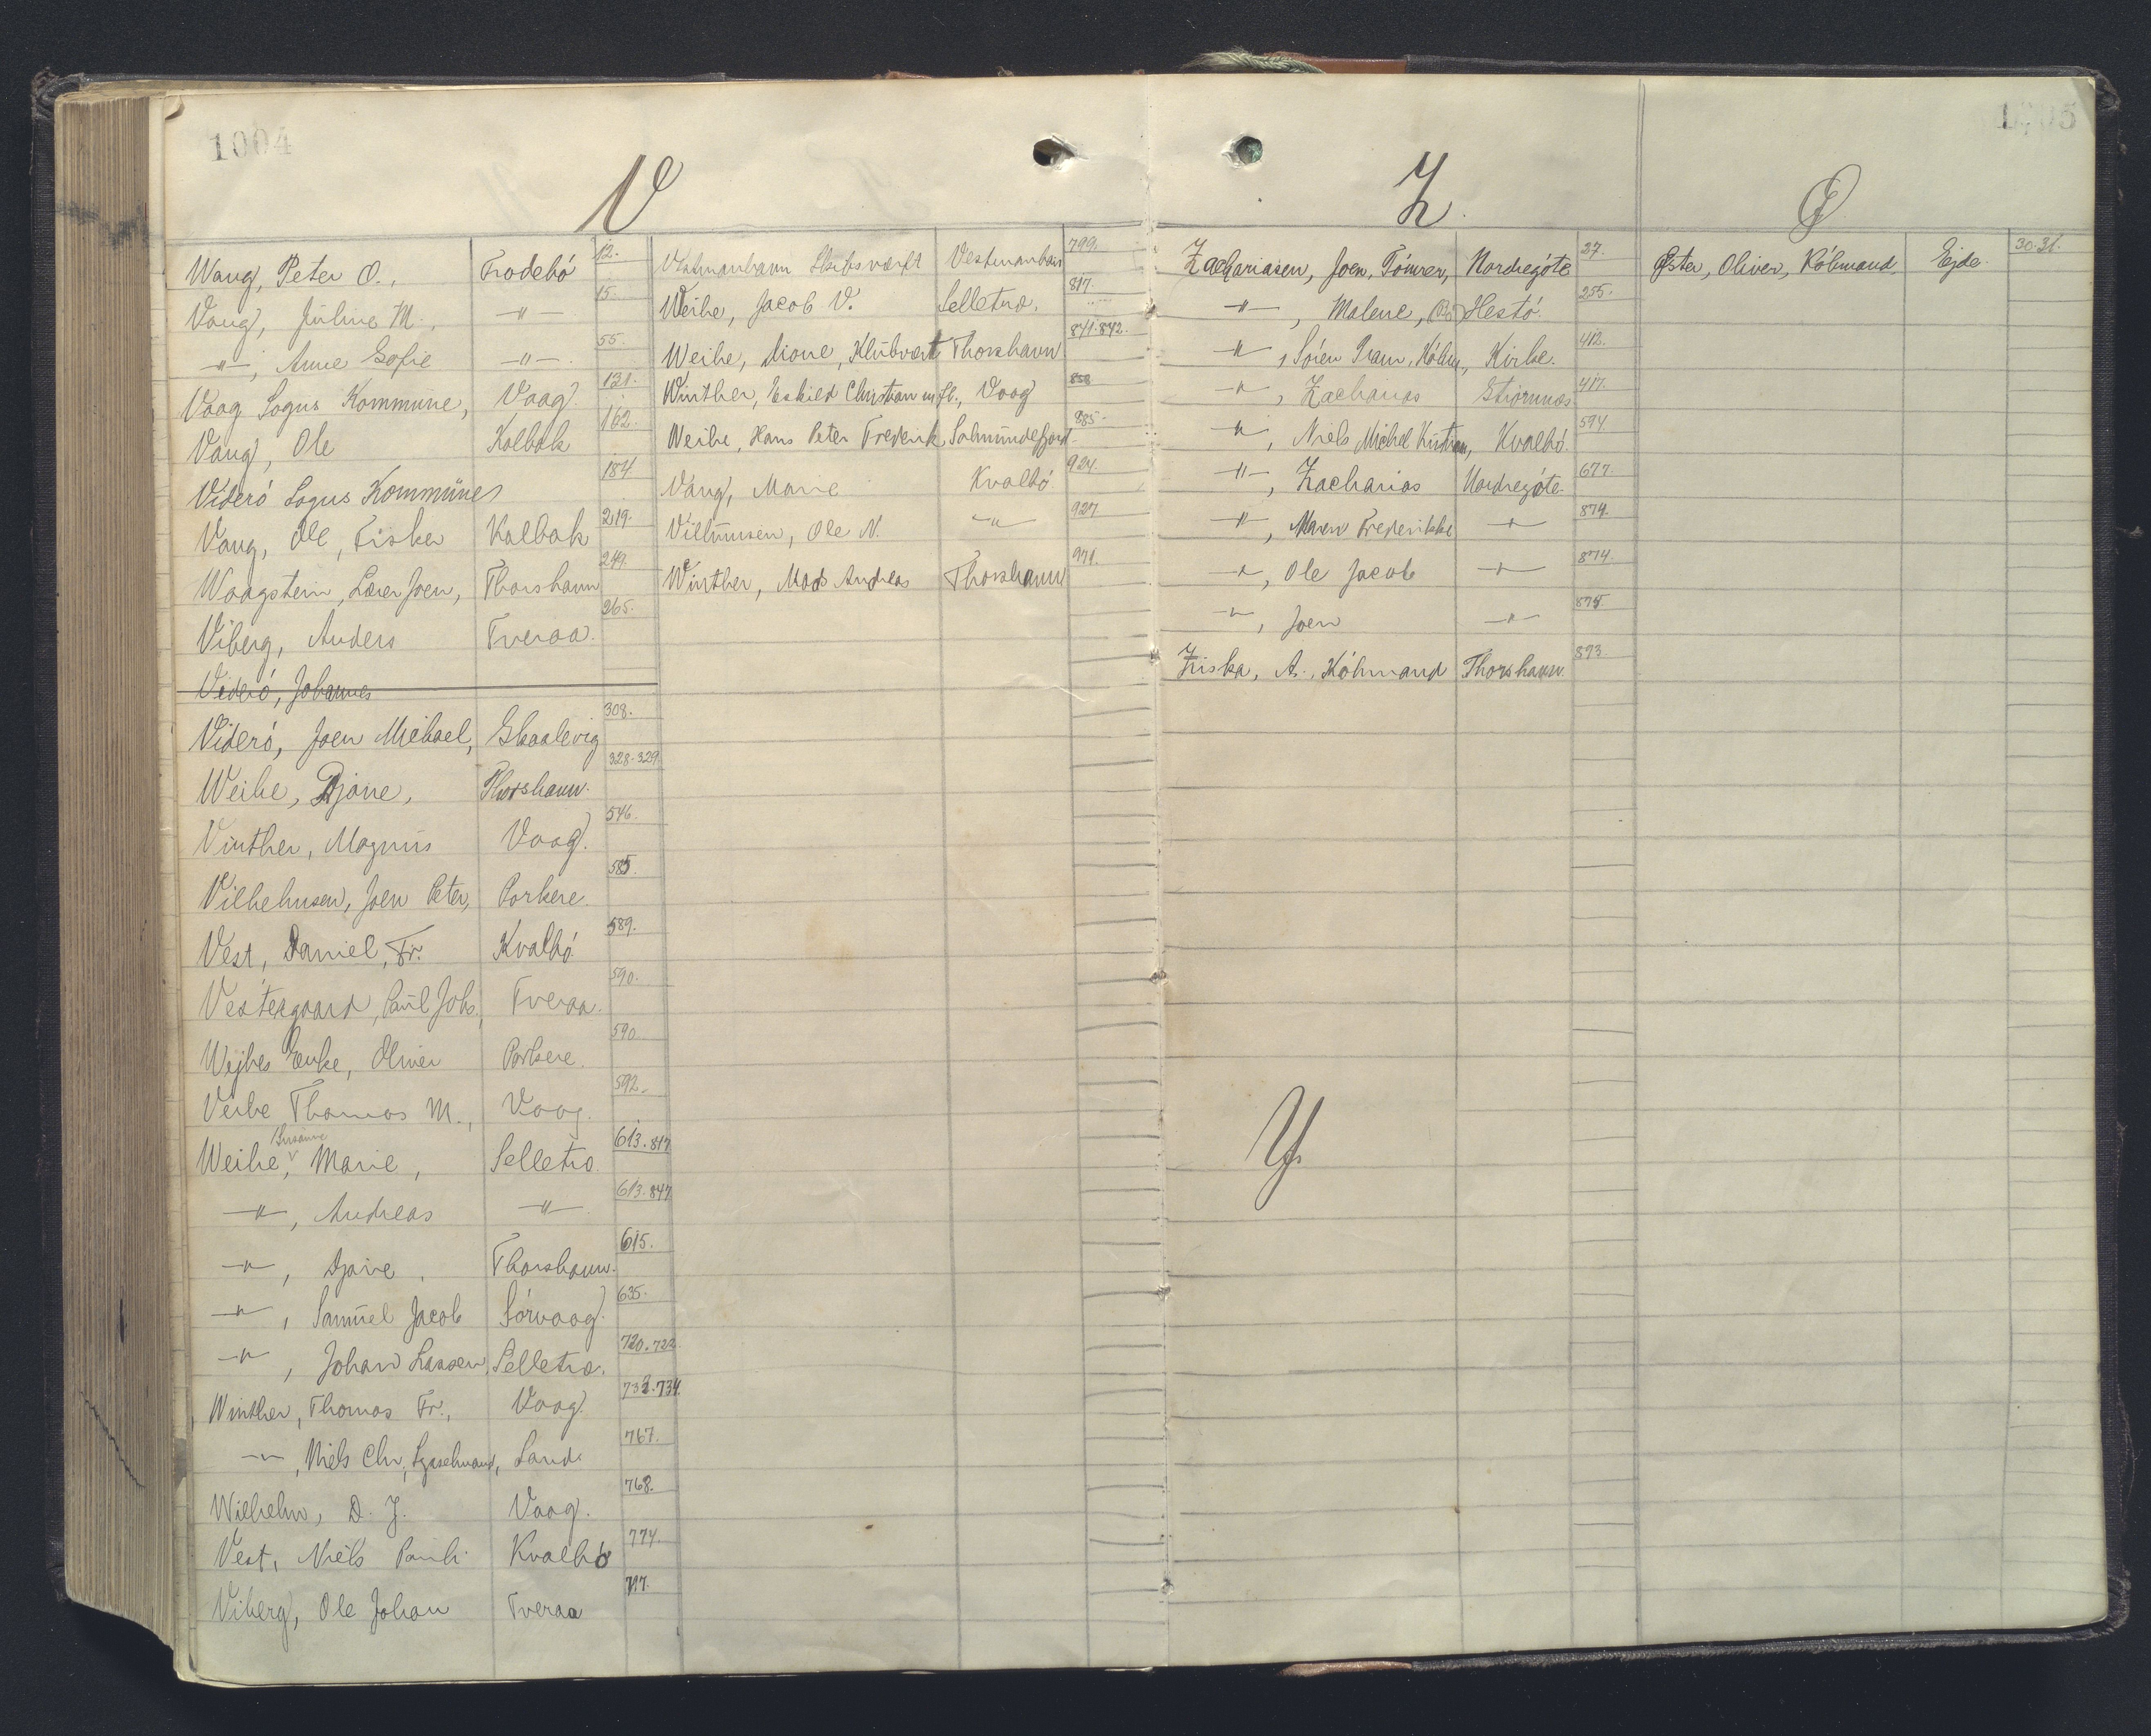 1004
V
Waag, Peter O., Frodebó 12.
Vaag, Juline M., -"- 15.
-"-, Anne Sofie -"- 55.
Vaag Sogns Kommune, Vaag 131.
Vaag, Ole Kalbak 162.
Viderö Sogns Kommune 184.
Vaag, Ole, Fisker Kalbak 219.
Waagstein, Lærer Joen, Thorshavn 249.
Viberg, Anders Tveraa. 265.
Viderö, Johannes
Viderö, Joen Michael, Skaalevig 308.
Weihe, Djone, Thorshavn. 328-329
Vinther, Magnus Vaag. 546.
Vilhelmsen, Joen Peter, Porkere. 585.
Vest, Daniel, Fr. Kvalbó. 589.
Vestergaard, Paul Johs., Tveraa. 590.
Wejhes Enke, Oliver Porkere. 590.
Veihe Thomas M., Vaag. 592.
Weihe, Susanne Marie, Selletræ. 613.817
-"-, Andreas -"- 613.847
-"-, Djone, Thorshavn. 615.
-"-, Samuel Jacob Sörvaag. 635.
-"-, Johan Lassen, Selletræ. 720.722
Winther, Thomas Fr., Vaag. 733.734.
-"-, Niels Chr., Sysselmand, Sand. 767.
Wilhelm, D. J. Vaag. 768.
Vest, Niels Pauli Kvalbö 774.
Viberg, Ole Johan Tveraa 797.
Vestmanhavn Skibsværft Vestmanhavn 799.
Weihe, Jacob V. Selletræ. 817.
Weihe, Dione, Klubvært Thorshavn 841.842.
Winther, Eskild Christian m.fl., Vaag 858
Weihe, Hans Peter Frederik Salmundefjord 885.
Vang, Marie Kvalbó 924.
Vilhumsen, Ole N. -"- 927
Winther, Mads Andreas Thorshavn 971.
1005
Z
Zachariasen, Joen, Tömrer, Nordregóte 27.
-"-, Malene, Hestó. 255.
-"-, Sóren Pram, Kóbm, Kirke. 412.
-"-, Zacharias Strömnæs 417.
-"-, Niels Michel Kristian, Kvalbó. 594
-"-, Zacharias Nordregóte. 677.
-"-, Maren Frederikke -"- 874.
-"-, Ole Jacob -"- 874.
-"-, Joen -"- 875.
Ziska, A., Kóbmand Thorshavn. 893.
Y
Ø
Øster, Oliver, Kóbmand, Ejde. 30-31.